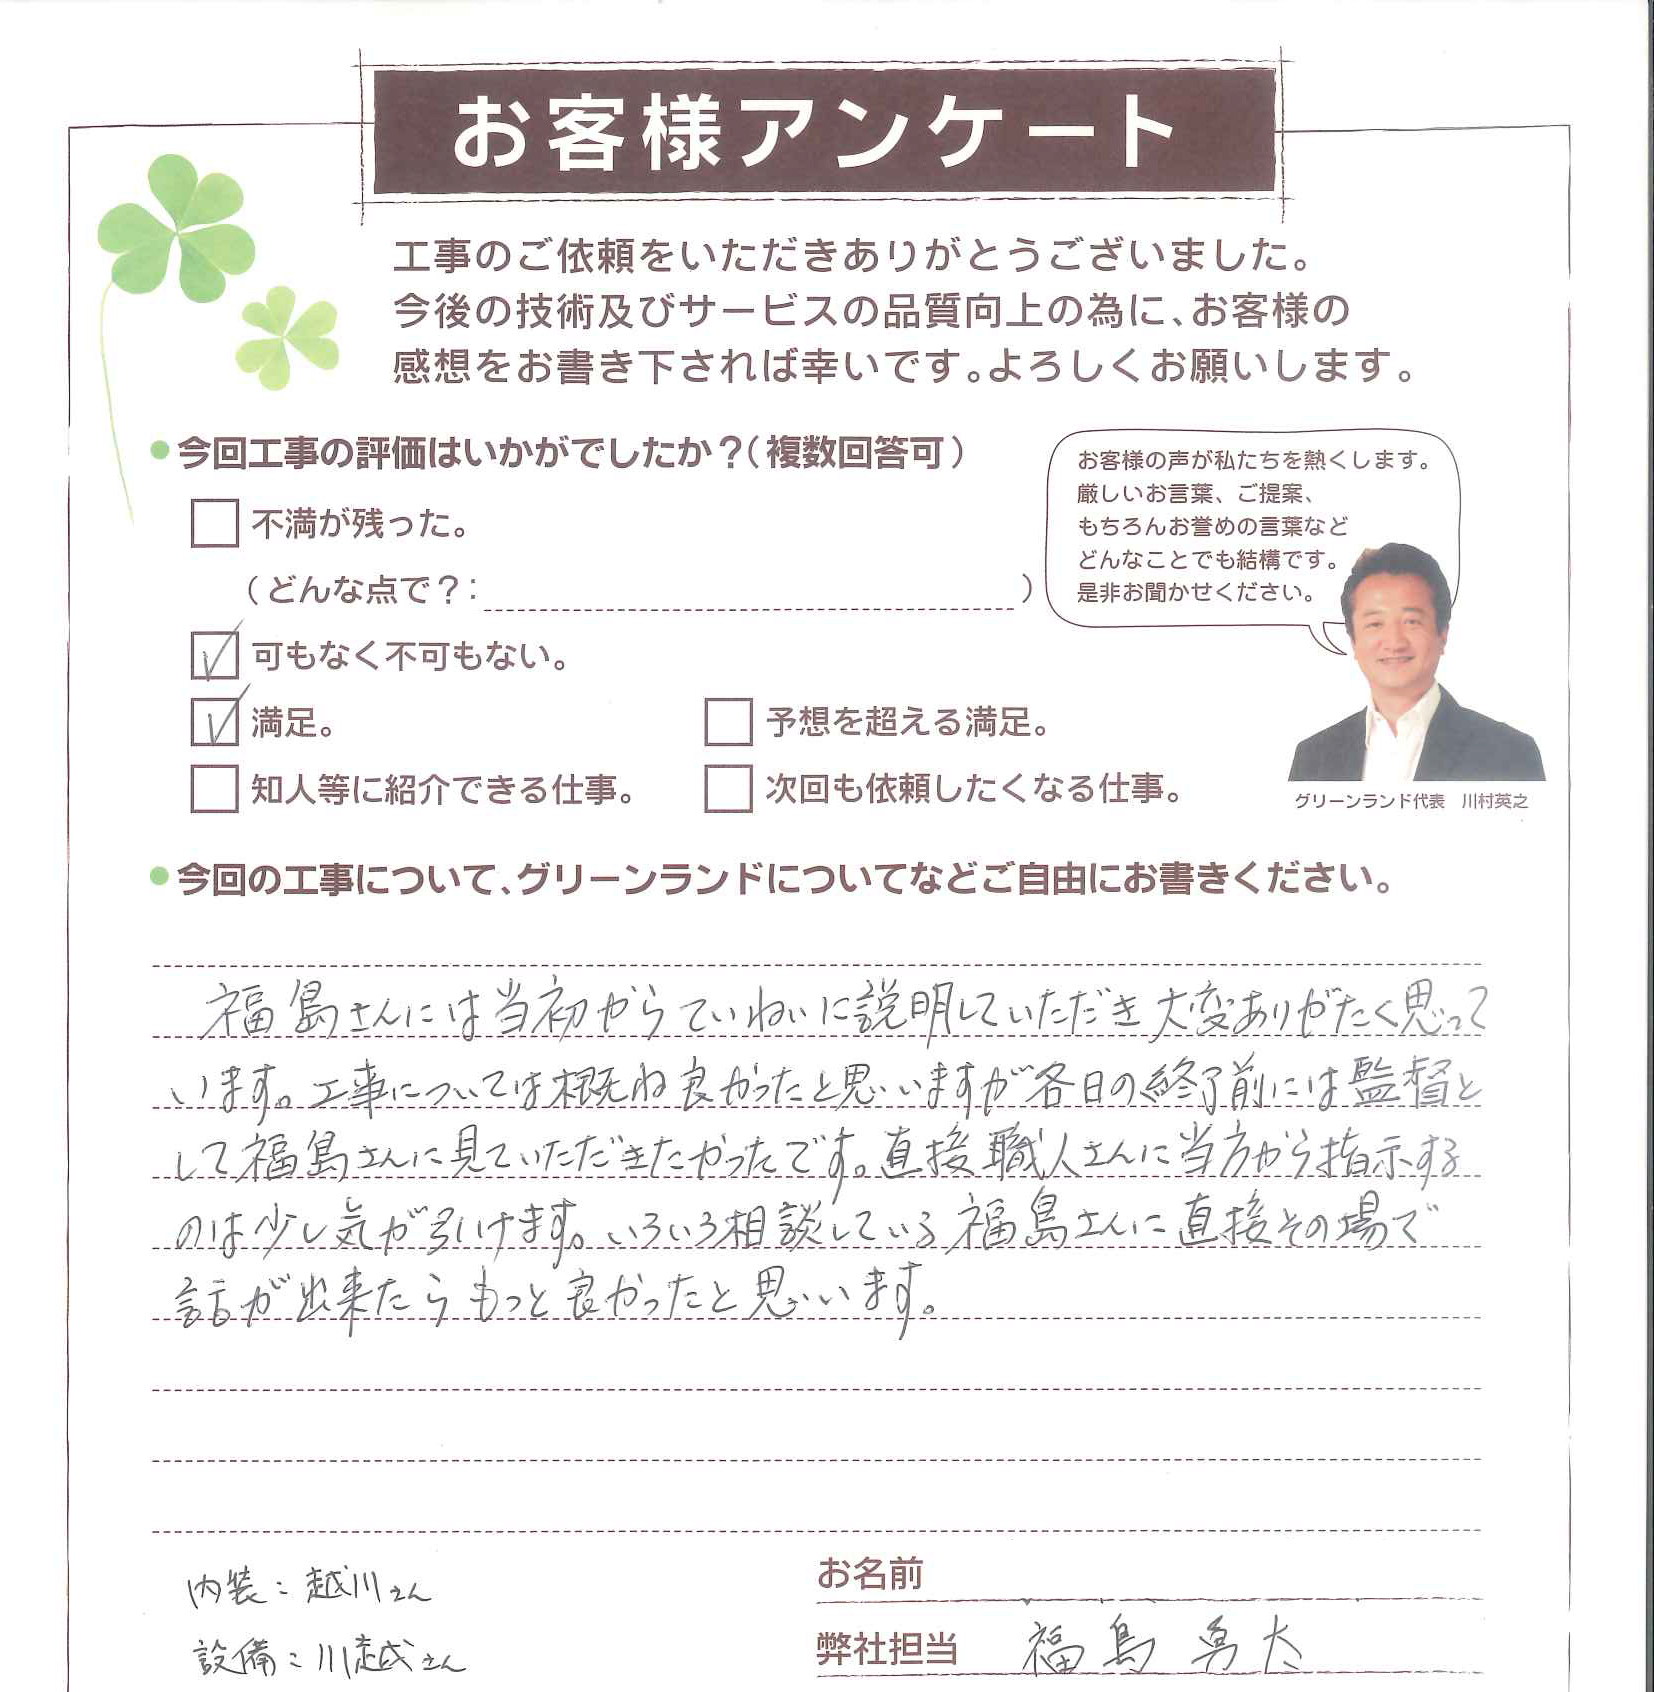 お客様アンケート
工事のご依頼をいただきありがとうございました。
今後の技術及びサービスの品質向上の為に、お客様の
感想をお書き下されば幸いです。よろしくお願いします。
今回工事の評価はいかがでしたか？（複数回答可）
不満が残った。
（どんな点で？：　）
可もなく不可もない。
満足。
予想を超える満足。
知人等に紹介できる仕事。
次回も依頼したくなる仕事。
お客様の声が私たちを熱くします。
厳しいお言葉、ご提案、
もちろんお誉めの言葉など
どんなことでも結構です。
是非お聞かせください。
グリーンランド代表　川村英之
今回の工事について、グリーンランドについてなどご自由にお書きください。
福島さんには当初からていねいに説明していただき大変ありがたく思って
います。工事については概ね良かったと思いますが各日の終了前には監督と
して福島さんに見ていただきたかったです。直接職人さんに当方から指示する
のは少し気が引けます。いろいろ相談している福島さんに直接その場で
話が出来たらもっと良かったと思います。
内装：越川さん
設備：川越さん
お名前
弊社担当　福島 勇太